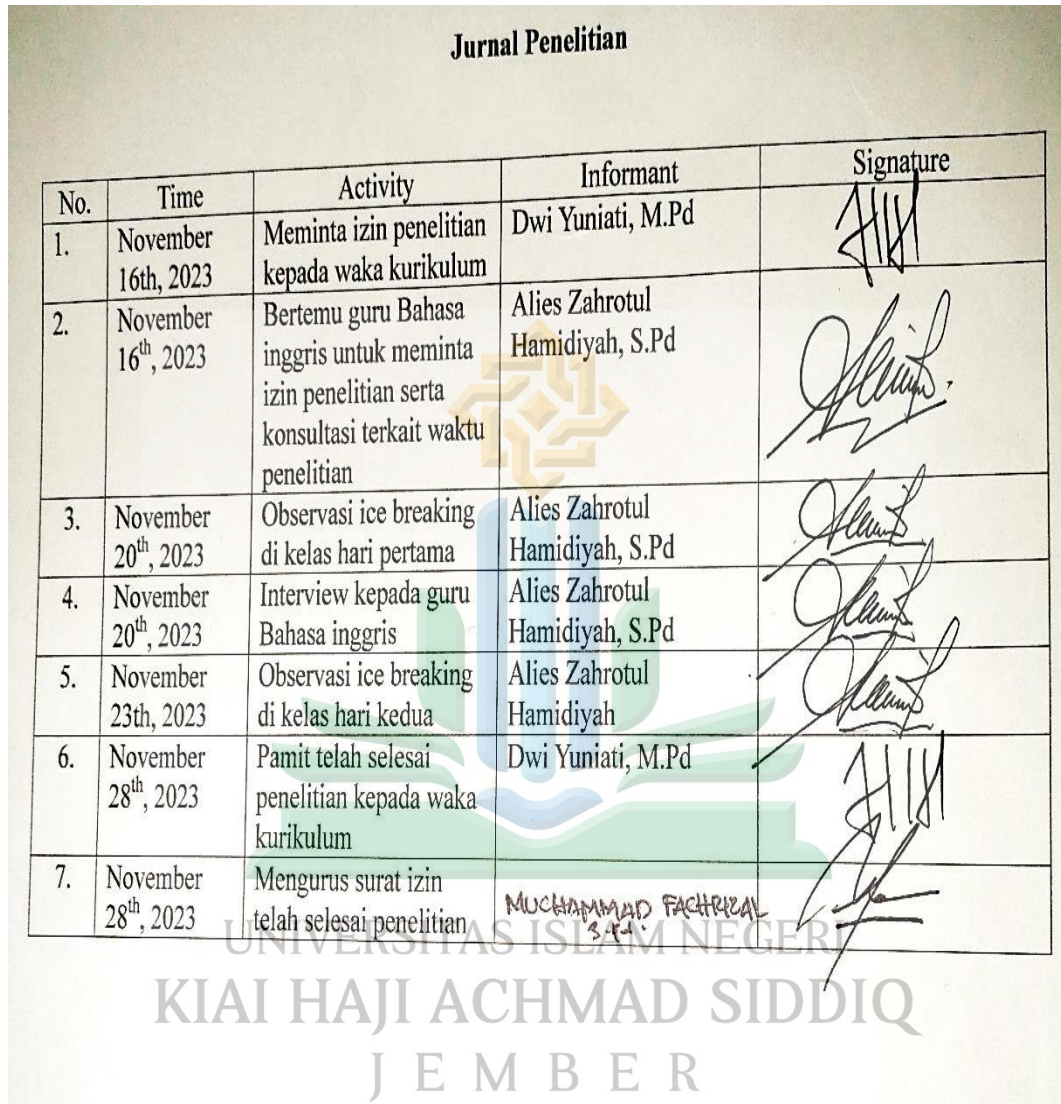 Jurnal Penelitian
No. Time Activity Informant Signature
1. November 16th, 2023 Meminta izin penelitian kepada waka kurikulum Dwi Yuniati, M.Pd
2. November 16th, 2023 Bertemu guru Bahasa inggris untuk meminta izin penelitian serta konsultasi terkait waktu penelitian Alies Zahrotul Hamidiyah, S.Pd
3. November 20th, 2023 Observasi ice breaking di kelas hari pertama Alies Zahrotul Hamidiyah, S.Pd
4. November 20th, 2023 Interview kepada guru Bahasa inggris Alies Zahrotul Hamidiyah, S.Pd
5. November 23th, 2023 Observasi ice breaking di kelas hari kedua Alies Zahrotul Hamidiyah
6. November 28th, 2023 Pamit telah selesai penelitian kepada waka kurikulum Dwi Yuniati, M.Pd
7. November 28th, 2023 Mengurus surat izin telah selesai penelitian MUCHAMMAD FACHRIZAL S.Pd.
UNIVERSITAS ISLAM NEGERI
KIAI HAJI ACHMAD SIDDIQ
JEMBER